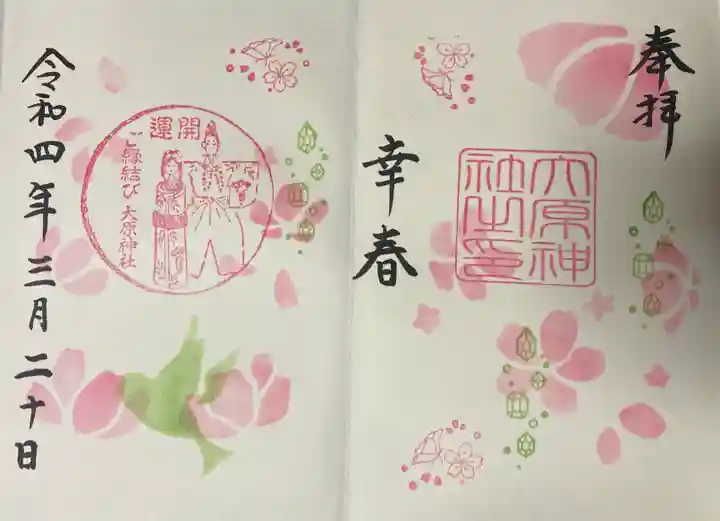 奉拝
大原神
社之印
幸春
開運
ご縁結び 大原神社
令和四年三月二十日